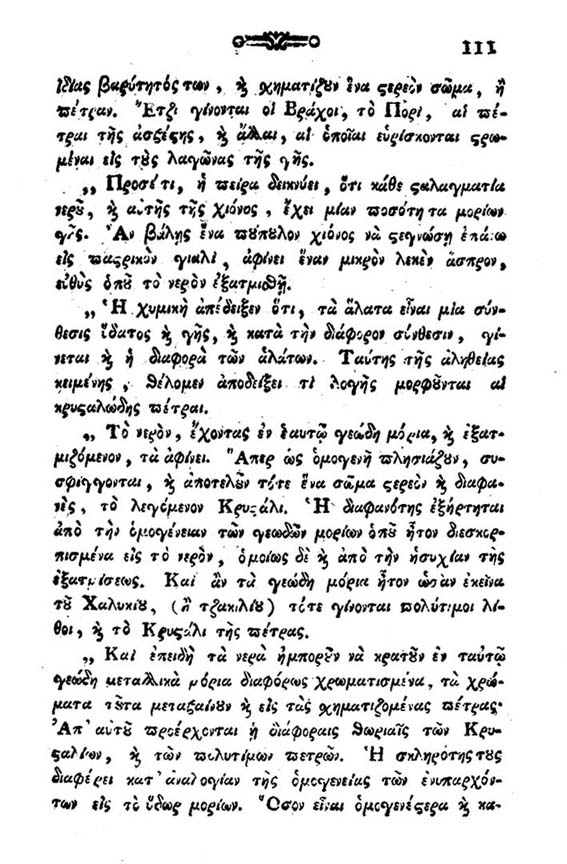 111
ἰδίας βαρύτητός των, ϗ χηματίζȣν ἕνα ϛερεὸν σῶμα, ἢ
πέτραν. Ἔτζι γίνονται οἱ Βράχοι, τὸ Πορὶ, αἱ πέ-
τραι τῆς ἀσβέϛης, ϗ ἄλλαι, αἱ ὁποῖαι εὑρίσκονται ϛρω-
μέναι εἰς τȣ̀ς λαγῶνας τῆς γῆς.
„ Προσέτι, ἡ πεῖρα δεικνύει, ὅτι κάθε ϛαλαγματία
νερȣ͂, ϗ αὐτῆς τῆς χιόνος, ἔχει μίαν ποσότητα μορίων
γῆς. Ἂν βάλης ἕνα πȣ́πȣλον χιόνος νὰ ϛεγνώσῃ ἐπάνω
εἰς παϛρικὸν γιαλὶ, ἀφίνει ἕναν μικρὸν λεκὲν ἄσπρον,
εὐθὺς ὁπȣ͂ τὸ νερὸν ἐξατμισθῇ.
„ Ἡ χυμικὴ ἀπέδειξεν ὅτι, τὰ ἅλατα εἶναι μία σύν-
θεσις ὕδατος ϗ γῆς, ϗ κατὰ τὴν διάφορον σύνθεσιν, γί-
νεται ϗ ἡ διαφορὰ τῶν ἁλάτων. Ταύτης τῆς ἀληθείας
κειμένης, θέλομεν ἀποδείξει τὶ λογῆς μορφȣ͂νται αἱ
κρυϛαλώδης πέτραι.
„ Τὸ νερὸν, ἔχοντας ἐν ἑαυτῷ γεώδη μόρια, ϗ ἐξατ-
μιζόμενον, τὰ ἀφίνει. Ἅπερ ὡς ὁμογενῆ πλησιάζȣν, συ-
σφίγγονται, ϗ ἀποτελȣ͂ν τότε ἕνα σῶμα ϛερεὸν ϗ διαφα-
νὲς, τὸ λεγόμενον Κρυϛάλι. Ἡ διαφανότης ἐξήρτηται
ἀπὸ τὴν ὁμογένειαν τῶν γεωδῶν μορίων ὁπȣ͂ ἦτον διεσκορ-
πισμένα εἰς τὸ νερὸν, ὁμοίως δὲ ϗ ἀπὸ τὴν ἡσυχίαν τῆς
ἐξατμίσεως. Καὶ ἂν τὰ γεώδη μόρια ἦτον ὡσὰν ἐκεῖνα
τȣ͂ Χαλυκίȣ, (ἢ τζακιλίȣ) τότε γίνονται πολύτιμοι λί-
θοι, ϗ τὸ Κρυϛάλι τῆς πέτρας.
„ Καὶ ἐπειδὴ τὰ νερὰ ἠμπορȣ͂ν νὰ κρατȣ͂ν ἐν ταὐτῷ
γεώδη μεταλλικὰ μόρια διαφόρως χρωματισμένα, τὰ χρώ-
ματα τȣ͂τα μεταβαίνȣν ϗ εἰς τὰς χηματιζομένας πέτρας.
Ἀπ' αὐτȣ͂ προέρχονται ἡ διάφοραις θωριαῖς τῶν Κρυ-
ϛαλίων, ϗ τῶν πολυτίμων πετρῶν. Ἡ σκληρότης τȣς
διαφέρει κατ' ἀναλογίαν τῆς ὁμογενείας τῶν ἐνυπαρχόν-
των εἰς τὸ ὕδωρ μορίων. Ὅσον εἶναι ὁμογενέϛερα ϗ κα-